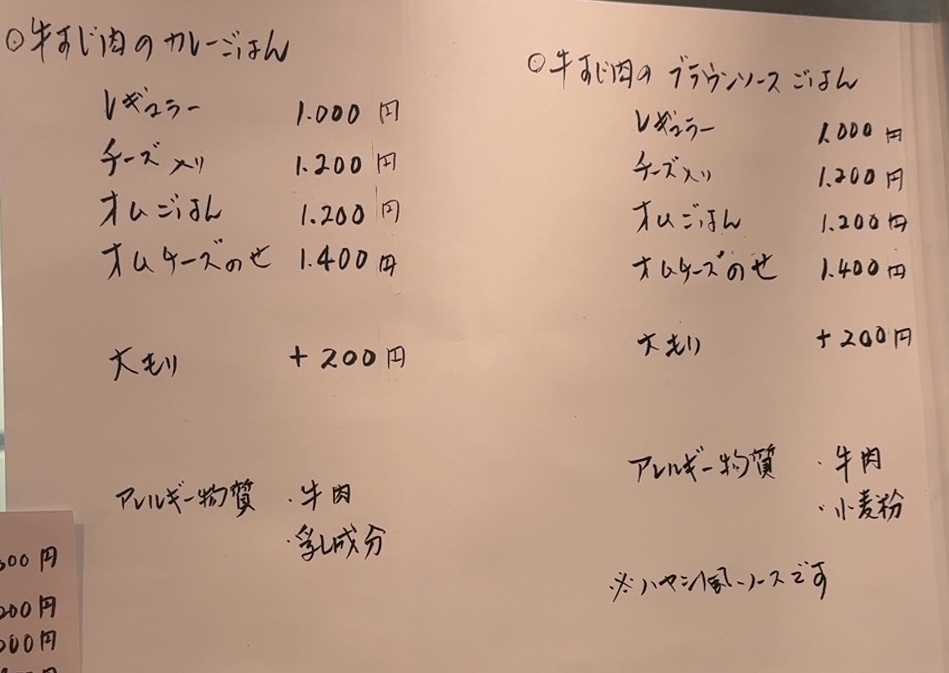 ○牛すじ肉のカレーごはん
レギュラー 1.000円
チーズ入り 1.200円
オムごはん 1.200円
オムチーズのせ 1.400円
大もり +200円
アレルギー物質 ・牛肉
・乳成分
○牛すじ肉のブラウンソースごはん
レギュラー 1.000円
チーズ入り 1.200円
オムごはん 1.200円
オムチーズのせ 1.400円
大もり +200円
アレルギー物質 ・牛肉
・小麦粉
※ハヤシ風ソースです
00円
200円
000円